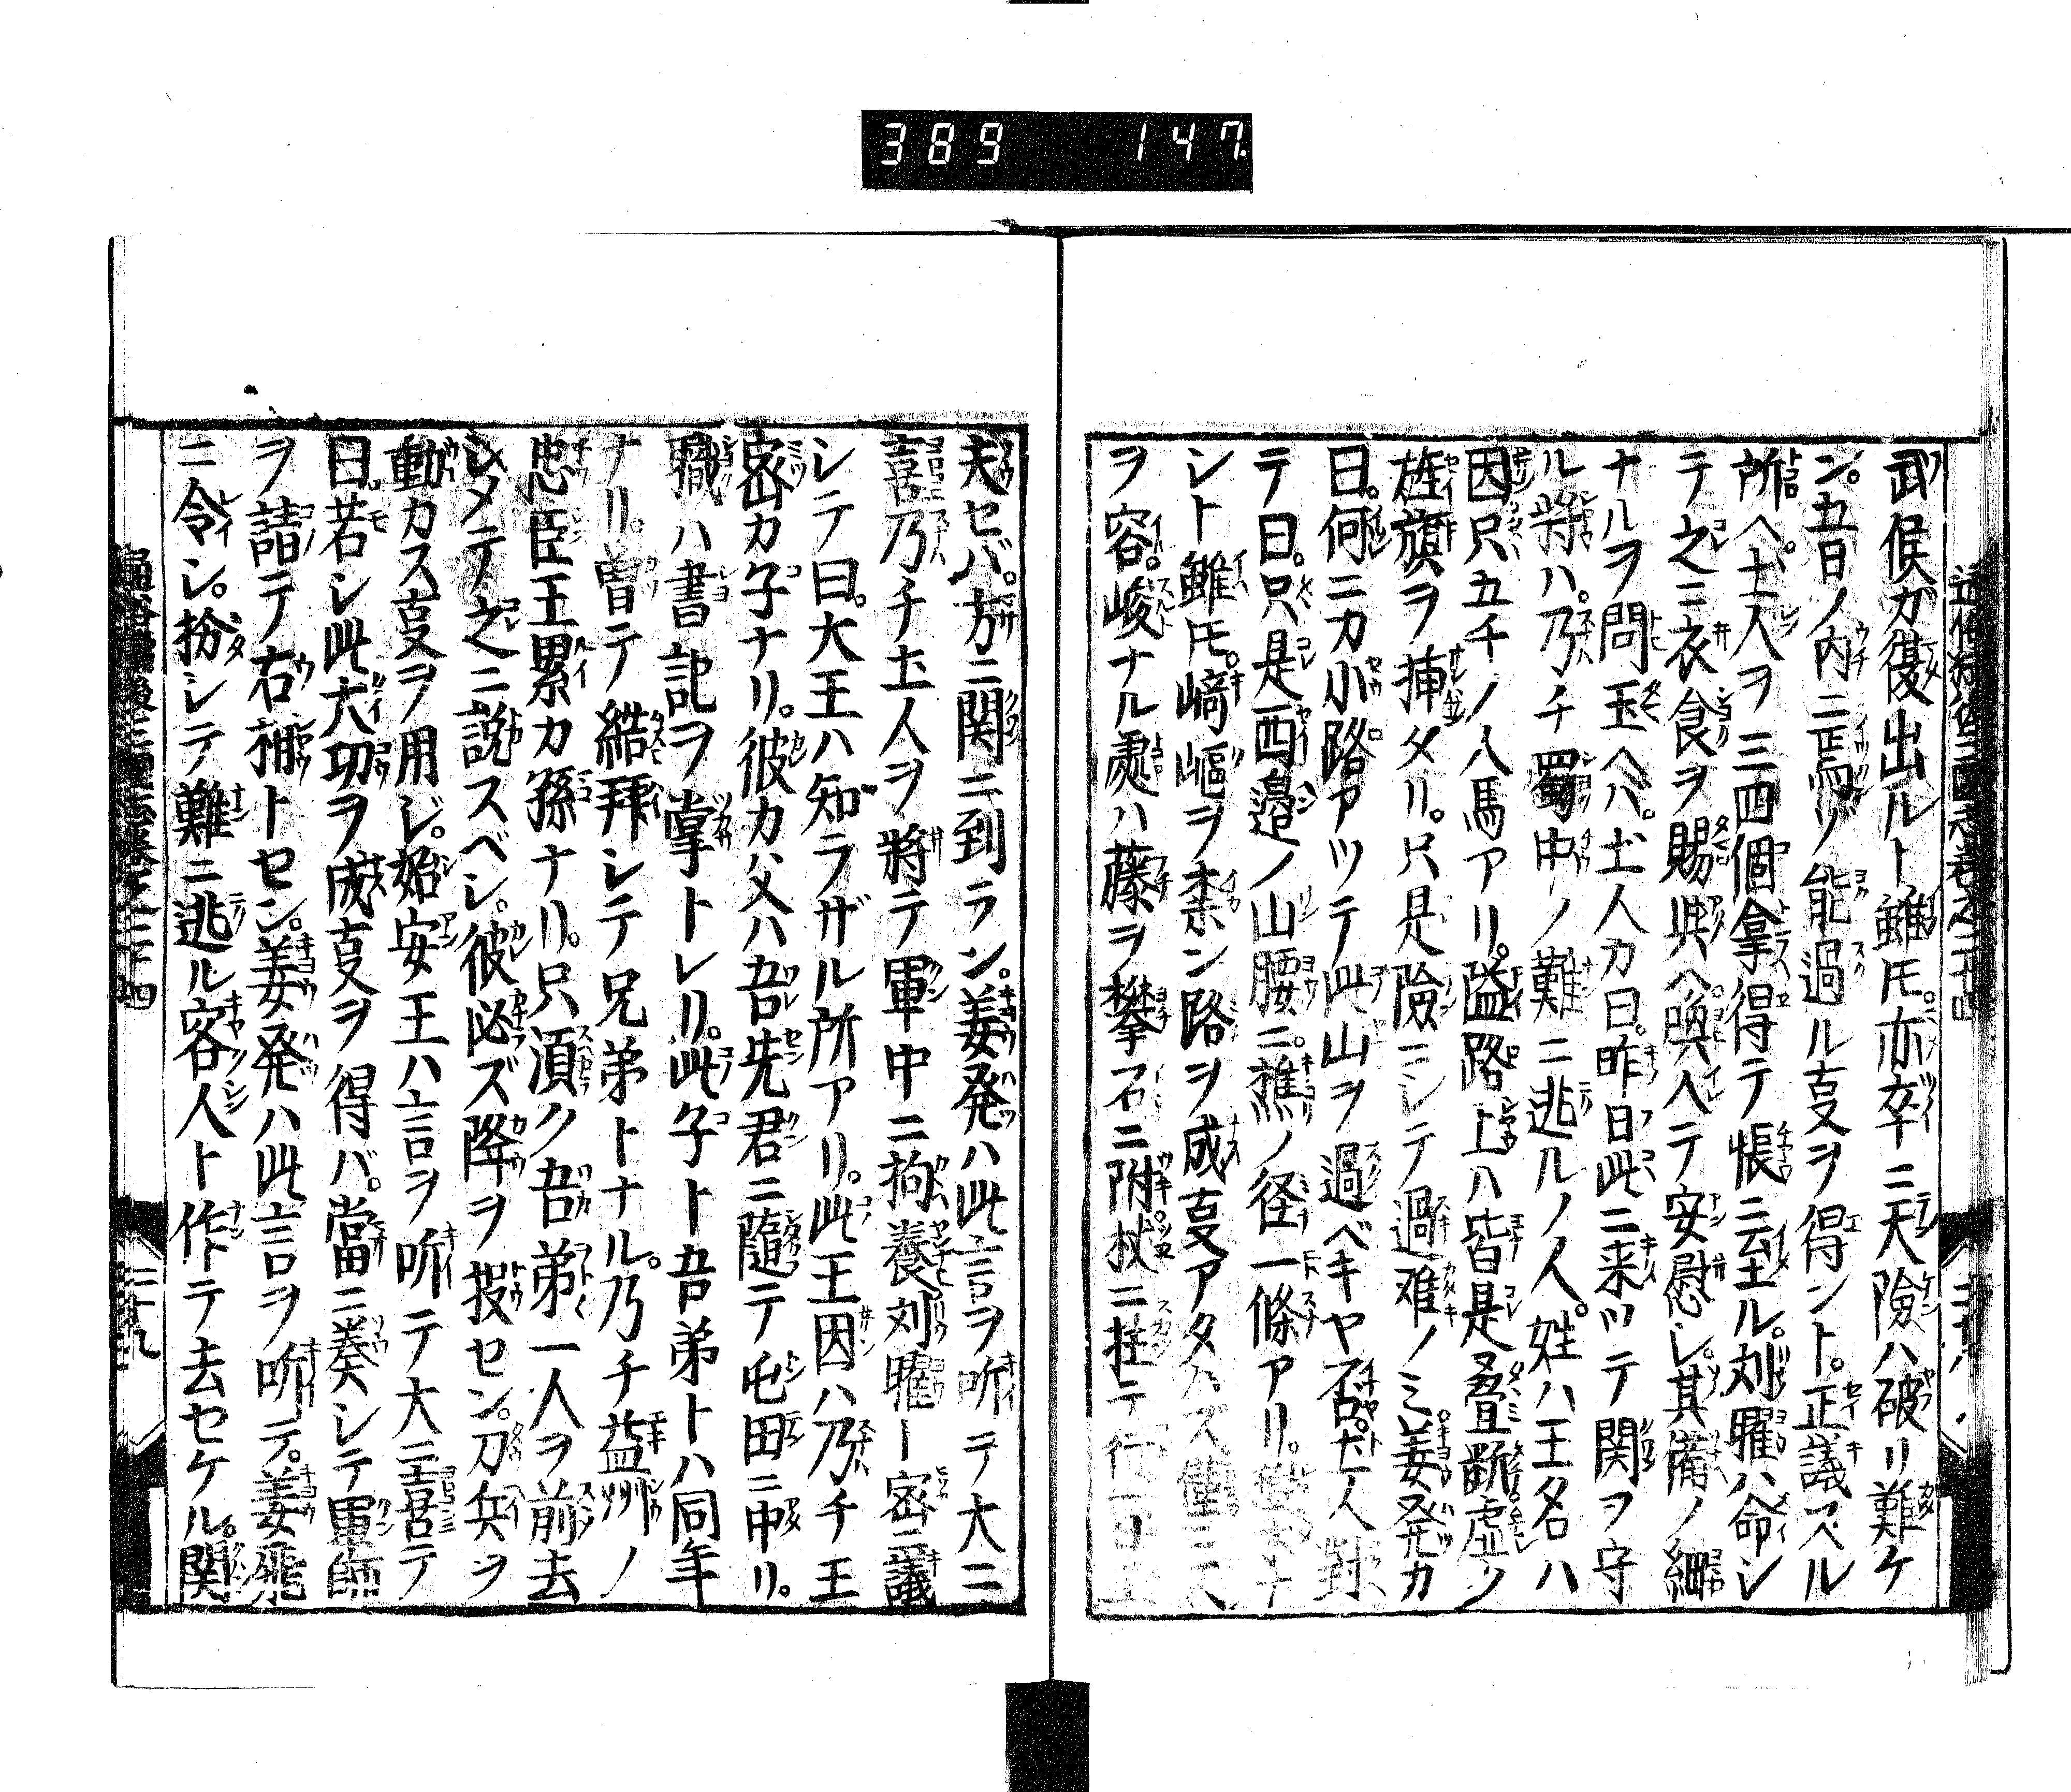 389 147
武侯カ復出ルト雖モ。亦卒ニ天險ハ破リ難ケ
ン。五日ノ内ニ焉ソ能過ル叓ヲ得ント。正議スベル
所ヘ。士人ヲ三四個拿得テ帳ニ至ル。刘曜ハ命シ
テ之ニ衣食ヲ賜與ヘ喚入テ安慰シ。其備ノ細
ナルヲ問玉ヘハ。土人カ曰。昨日此ニ来ツテ関ヲ守
ル將ハ。乃チ蜀中ノ難ニ逃ルノ人。姓ハ王名ハ
因只五千ノ人馬アリ。隘路上ハ皆是疊嶃虚ク
旌旗ヲ挿タリ。只是險ニシテ過难ノミ姜発カ
曰。何ニカ小路アツテ此山ヲ過ベキヤ否。土人對
テ曰。只是西邉ノ山腰ニ。樵ノ径一條アリ。
シト雖モ。﨑嶇ヲ柰ン路ヲ成叓アタハズ
ヲ容。峻ナル處ハ藤ヲ攀石ニ附杖ニ拄テ行
夫セバ。方ニ関ニ到ラン。姜発ハ此言ヲ听テ大ニ
喜乃チ土人ヲ將テ軍中ニ拘養刘曜ト密ニ議
シテ曰。大王ハ知ラザル所アリ。此王因ハ乃チ王
密カ子ナリ。彼カ父ハ吾先君ニ隨テ屯田ニ中リ。
職ハ書記ヲ掌トレリ。此子ト吾弟トハ同年
ナリ。曽テ結拜シテ兄弟トナル。乃チ益州ノ
忠臣王累カ孫ナリ。只須ク吾弟一人ヲ前去
シメテ之ニ説スベシ。彼必ズ降ヲ投セン。刀兵ヲ
動カス叓ヲ用ジ。始安王ハ言ヲ听テ大ニ喜テ
曰若シ此大功ヲ成叓ヲ得バ。當ニ奏シテ軍師
ヲ請テ右補トセン。姜発ハ此言ヲ听テ。姜飛
ニ令シ。扮シテ難ニ逃ル客人ト作テ去セケル。関